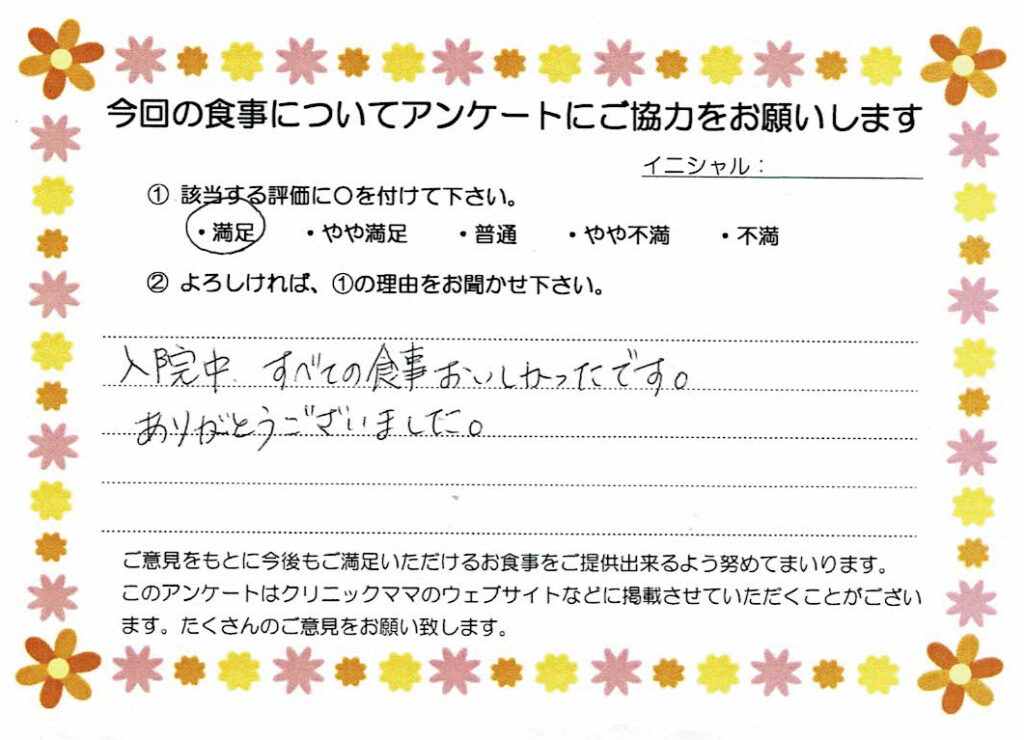 今回の食事についてアンケートにご協力をお願いします
イニシャル：
① 該当する評価に〇を付けて下さい。
・満足 ・やや満足 ・普通 ・やや不満 ・不満
② よろしければ、①の理由をお聞かせ下さい。
入院中、すべての食事おいしかったです。
ありがとうございました。
ご意見をもとに今後もご満足いただけるお食事をご提供出来るよう努めてまいります。
このアンケートはクリニックママのウェブサイトなどに掲載させていただくことがござい
ます。たくさんのご意見をお願い致します。